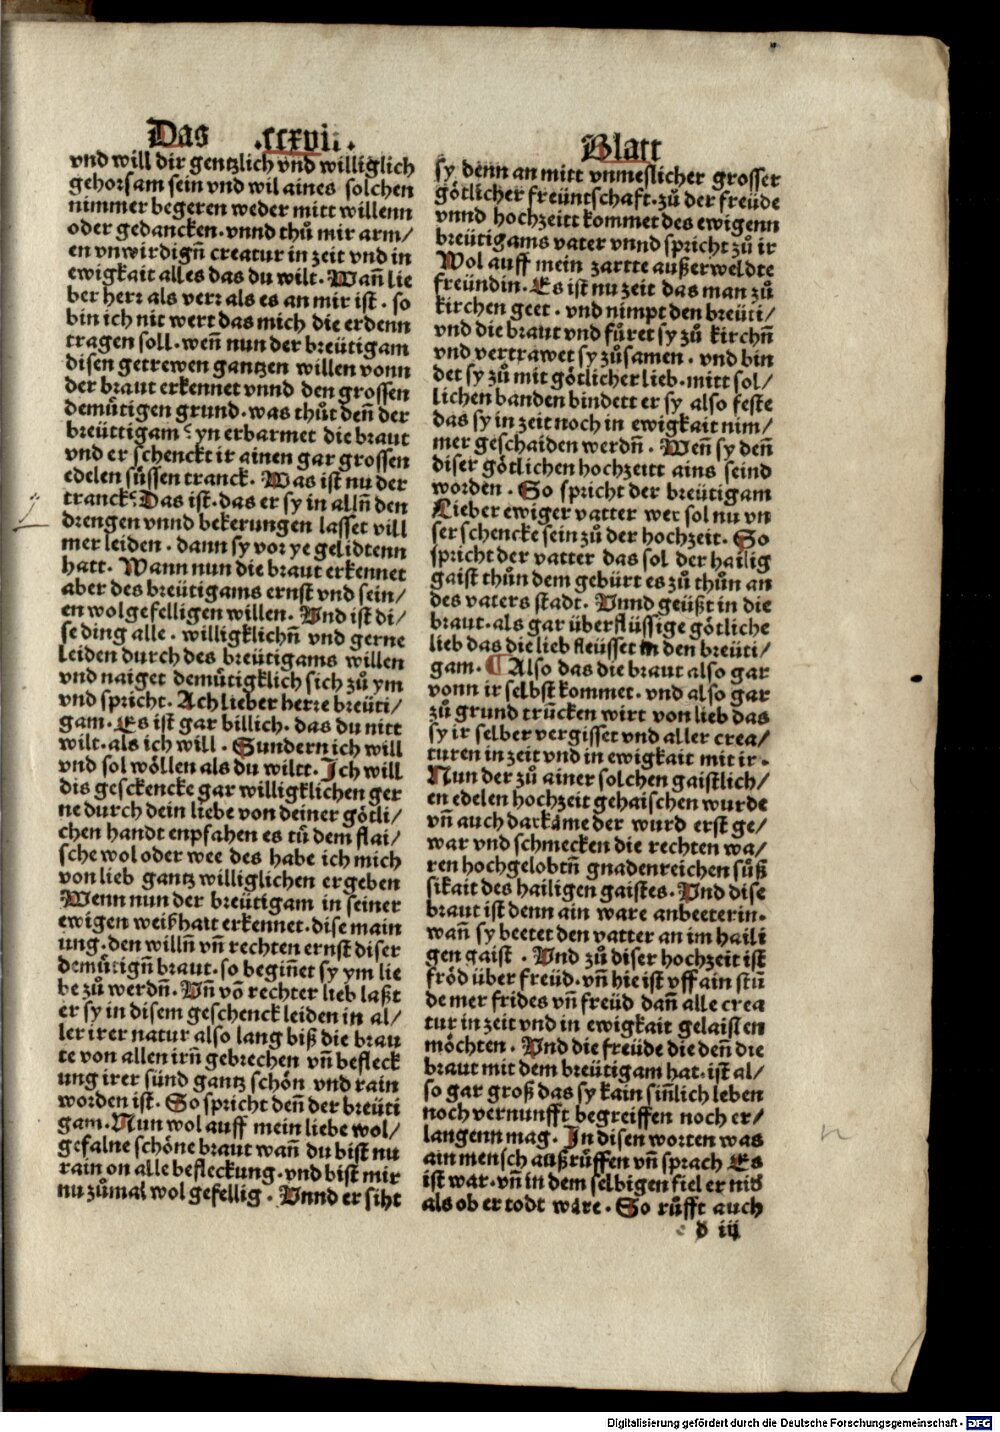 Das .ccxvii. Blatt
vnd will dir gentzlich vnd williglich
gehorsam sein vnd wil aines solchen
nimmer begeren weder mitt willenn
oder gedancken. vnnd thuͦ mir arm/
en vnwirdign̄ creatur in zeit vnd in
ewigkait alles das du wilt. Wan̄ lie
ber herr als verr als es an mir ist. so
bin ich nit wert das mich die erdenn
tragen soll. wen̄ nun der breütigam
disen getrewen gantzen willen vonn
der braut erkennet vnnd den grossen
demuͤtigen grund. was thuͦt den̄ der
breüttigam? yn erbarmet die braut
vnd er schenckt ir ainen gar grossen
edelen suͤssen tranck. Was ist nu der
tranck? Das ist. das er sy in alln̄ den
drengen vnnd bekerungen lasset vill
mer leiden. dann sy vor ye gelidtenn
hatt. Wann nun die braut erkennet
aber des breütigams ernst vnd sein/
en wolgefelligen willen. Vnd ist di/
se ding alle. willigklichn̄ vnd gerne
leiden durch des breütigams willen
vnd naiget demuͤtigklich sich zuͦ ym
vnd spricht. Ach lieber herre breüti/
gam. Es ist gar billich. das du nitt
wilt. als ich will. Sundern ich will
vnd sol woͤllen als du wiltt. Ich will
dis gesckencke gar willigklichen ger
ne durch dein liebe von deiner goͤtli/
chen handt enpfahen es tuͦ dem flai/
sche wol oder wee des habe ich mich
von lieb gantz williglichen ergeben
Wenn nun der breütigam in seiner
ewigen weißhatt erkennet. dise main
ung. den willn̄ vn̄ rechten ernst diser
demuͤtign̄ braut. so begin̄et sy ym lie
be zuͦ werdn̄. Vn̄ vō rechter lieb laßt
er sy in disem geschenck leiden in al/
ler irer natur also lang biß die brau
te von allen irn̄ gebrechen vn̄ befleck
ung irer sünd gantz schoͤn vnd rain
worden ist. So spricht den̄ der breüti
gam. Nun wol auff mein liebe wol/
gefalne schoͤne braut wan̄ du bist nu
rain on alle befleckung. vnd bist mir
nu zuͦmal wol gefellig. Vnnd er siht
sy denn an mitt vnmeslicher grosser
goͤtlicher freüntschaft. zuͦ der freüde
vnnd hochzeitt kommet des ewigenn
breütigams vater vnnd spricht zuͦ ir
Wol auff mein zartte außerweldte
freündin. Es ist nu zeit das man zuͦ
kirchen geet. vnd nimpt den breüti/
vnd die braut vnd fuͤret sy zuͦ kirchn̄
vnd vertrawet sy zuͦsamen. vnd bin
det sy zuͦ mit goͤtlicher lieb. mitt sol/
lichen banden bindett er sy also feste
das sy in zeit noch in ewigkait nim/
mer geschaiden werdn̄. Wen̄ sy den̄
diser goͤtlichen hochzeitt ains seind
worden. So spricht der breütigam
Lieber ewiger vatter wer sol nu vn
ser schencke sein zuͦ der hochzeit. So
spricht der vatter das sol der hailig
gaist thuͦn dem gebürt es zuͦ thuͦn an
des vaters stadt. Vnnd geüßt in die
braut. als gar überflüssige goͤtliche
lieb das die lieb fleüsset in den breüti/
gam. ¶ Also das die braut also gar
vonn ir selbst kommet. vnd also gar
zuͦ grund truͤcken wirt von lieb das
sy ir selber vergisset vnd aller crea/
turen in zeit vnd in ewigkait mit ir.
Nun der zuͦ ainer solchen gaistlich/
en edelen hochzeit gehaischen wurde
vn̄ auch dar kaͤme der wurd erst ge/
war vnd schmecken die rechten wa/
ren hochgelobtn̄ gnadenreichen suͤß
sikait des hailigen gaistes. Vnd dise
braut ist denn ain ware anbeeterin.
wan̄ sy beetet den vatter an im haili
gen gaist. Vnd zuͦ diser hochzeit ist
froͤd über freüd. vn̄ hie ist vff ain stū
de mer frides vn̄ freüd dan̄ alle crea
tur in zeit vnd in ewigkait gelaisten
moͤchten. Vnd die freüde die den̄ die
braut mit dem breütigam hat. ist al/
so gar groß das sy kain sin̄lich leben
noch vernunfft begreiffen noch er/
langenn mag. In disen worten was
ain mensch außruͤffen vn̄ sprach Es
ist war. vn̄ in dem selbigen fiel er nid
als ob er todt waͤre. So ruͤfft auch
d iij
Digitalisierung gefördert durch die Deutsche Forschungsgemeinschaft - DFG